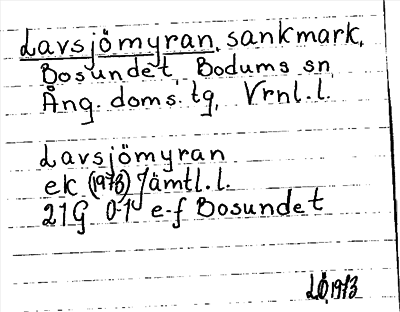 Lavsjömyran, sankmark,
Bosundet, Bodums sn
Ång. doms. tg, Vrnl. l.
Lavsjömyran
ek (1973) Jämtl. l.
21G 0-1 e-f Bosundet
LÖ 1973